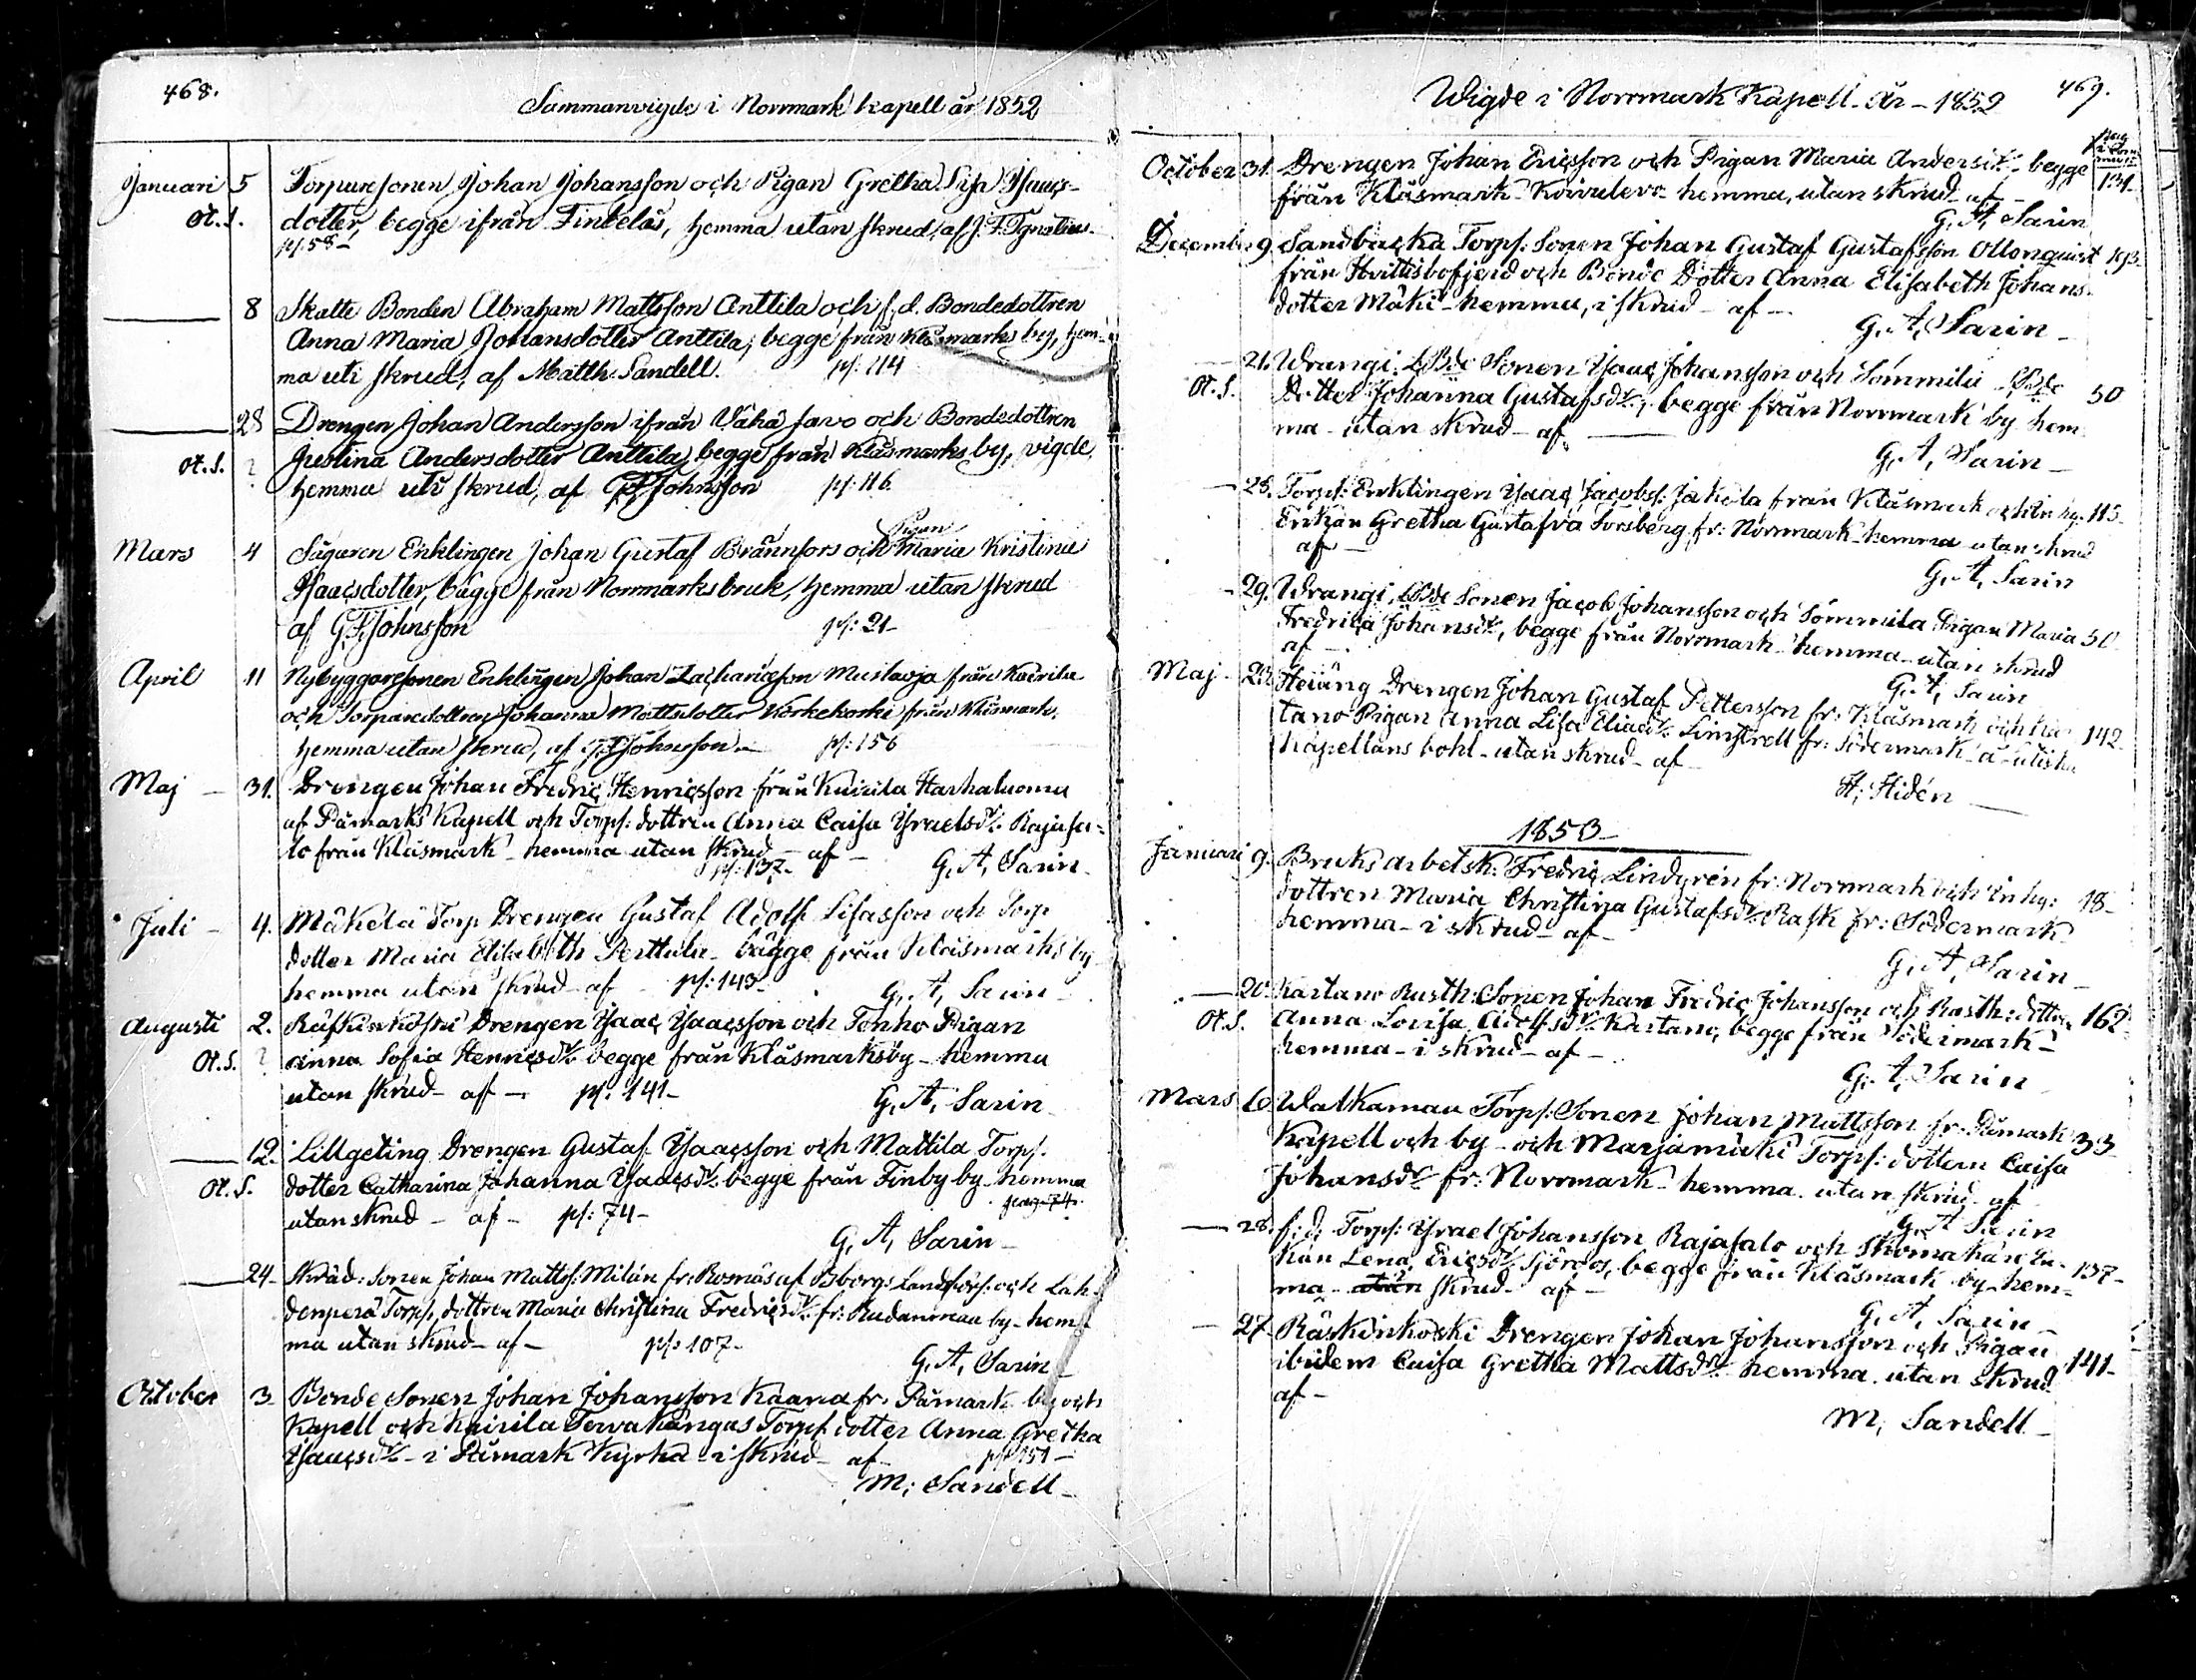 468.
Sammanvigde i Norrmark Kapell år 1852
Januari 5 Torparesonen Johan Johansson och Pigan Gretha Lisa Isaacs-
ot. s. dotter, begge ifrån Finbelås, hemma utan skrud, af J. F. Ignatius.
p/. 58 –
8 Skatte Bonden Abraham Mattsson Anttila och f. d. Bondedottren
Anna Maria Johansdotter Anttila, begge från Klåsmarks by, hem-
ma uti skrud, af Matth. Sandell. p/: 114
28 Drengen Johan Andersson ifrån Vähä Javo och Bondedottren
ot. s. ? Justina Andersdotter Anttila, begge från Klåsmarks by, vigde
hemma uti skrud, af G. F. Johnsson p/: 116
Pigan
Mars 4 Sågaren Enklingen Johan Gustaf Brännfors och Maria Kristina
Isaacsdotter, bägge från Norrmarks bruk, hemma utan skrud
af G. F. Johnsson p/: 21 –
April 11 Nybyggaresonen Enklingen Johan Zachariæson Mustaoja från Kairila
och Torparedottren Johanna Mattsdotter Kerkekoski från Klåsmark,
hemma utan skrud, af G. F. Johnsson – p/: 156
Maj – 31. Drengen Johan Fredric Henricsson från Kuirila Harhaluoma
af Påmarks Kapell och Torp/: dottren Anna Caisa Israelsdr. Rajasa-
lo från Klåsmark – hemma utan skrud – af –
p/: 137 – G. A. Sarin.
Juli – 4. Mäkelä Torp Drengen Gustaf Adolf Lisasson och Torp
dotter Maria Elisabeth Perttula – bägge från Klåsmarks by
hemma utan skrud – af – p/: 143 – G. A. Sarin –
Augusti 2. Räfkinkoski Drengen Isaac Isaacsson och Tonho Pigan
ot. s. ? Anna Sofia Henricsdr. begge från Klåsmarks by – hemma
utan skrud – af – p/. 141 – G. A. Sarin
12. Lillgeting Drengen Gustaf Isaacsson och Mattila Torp/.
ot. s. dotter Catharina Johanna Isaacsdr. begge från Finby by – hemma
utan skrud – af – p/: 74 –
G. A. Sarin –
24 – Skräd: Sonen Johan Matts/: Milán fr: Rosnäs af Bborgs Landsförs: och Lah-
denperä Torp/: dottren Maria Christina Fredricsdr. fr: Rudanmaa by – hem-
ma utan skrud – af – p/: 107 –
G. A. Sarin
October 3 – Bonde Sonen Johan Johansson Kaana fr: Påmark by och
Kapell och Kairila Tervakangas Torp/: dotter Anna Gretha
Isaacsdr. – i Påmark Kyrka – i skrud – af – p/: 151 –
M; Sandell –
469.
Wigde i Norrmark Kapell – År – 1852
October 31. Drengen Johan Ericsson och Pigan Maria Andersdr. – begge 131.
från Klåsmark – Koivulevo – hemma, utan skrud – af –
G. A. Sarin
December 9. Sandbacka Torp/: Sonen Johan Gustaf Gustafsson Ollonquist 193.
från Hvittisbofjerd och Bonde Dotter Anna Elisabeth Johans-
dotter Mäki – hemma, i skrud – af –
G. A. Sarin –
21. Wrangi, LBde Sonen Isaac Johansson och Sommila LBde 50
ot. s. Dotter Johanna Gustafsdr. begge från Norrmark by hem-
ma – utan skrud – af –
G. A. Sarin –
28. Torp/: Enklingen Isaac Jacobs/: Jakola från Klåsmark och Inhy: 115 –
Enkan Gretha Gustafva Forsberg fr: Norrmark – hemma utan skrud
af –
G. A. Sarin
29. Wrangi, LBde Sonen Jacob Johansson och Sommila Pigan Maria 50
Fredrica Johansdr., begge från Norrmark – hemma – utan skrud
af –
G. A. Sarin
Maj – 23. Heiäng Drengen Johan Gustaf Pettersson fr: Klåsmark och Kas-
tano Pigan Anna Lisa Eliædr. Linstroll fr: Södermark – å – 142
Kapellans bohl – utan skrud – af –
H; Hidén –
1853 –
Januari 9. Bruks arbetsk: Fredric Lindgrén fr: Norrmark och Inhy: 18 –
dottren Maria Christina Gustafsdr. Rask fr: Södermark –
hemma – i skrud – af –
G. A. Sarin –
20. Kastano Rusth: Sonen Johan Fredric Johansson och Rusth: dotter 162
ot. s. Anna Lovisa Adolfsdr. Kastano, begge från Södermark –
hemma – i skrud – af –
G. A. Sarin
Mars 6. Walkaman Torp/: Sonen Johan Mattsson fr: Påmark 33 –
Kapell och by – och Marjamäki Torp/: dottern Caisa
Johansdr. fr: Norrmark – hemma utan skrud – af
G. A. Sarin
28. f: d: Torp/: Israel Johansson Rajasalo och Skomakare En-
kan Lena Ericsdr. Sjöroos, begge från Klåsmark by – hem- 137 –
ma – utan skrud – af –
G. A. Sarin –
27. Räskinkoski Drengen Johan Johansson och Pigan
ibidem Caisa Gretha Mattsdr. – hemma utan skrud 141 –
af –
M; Sandell –